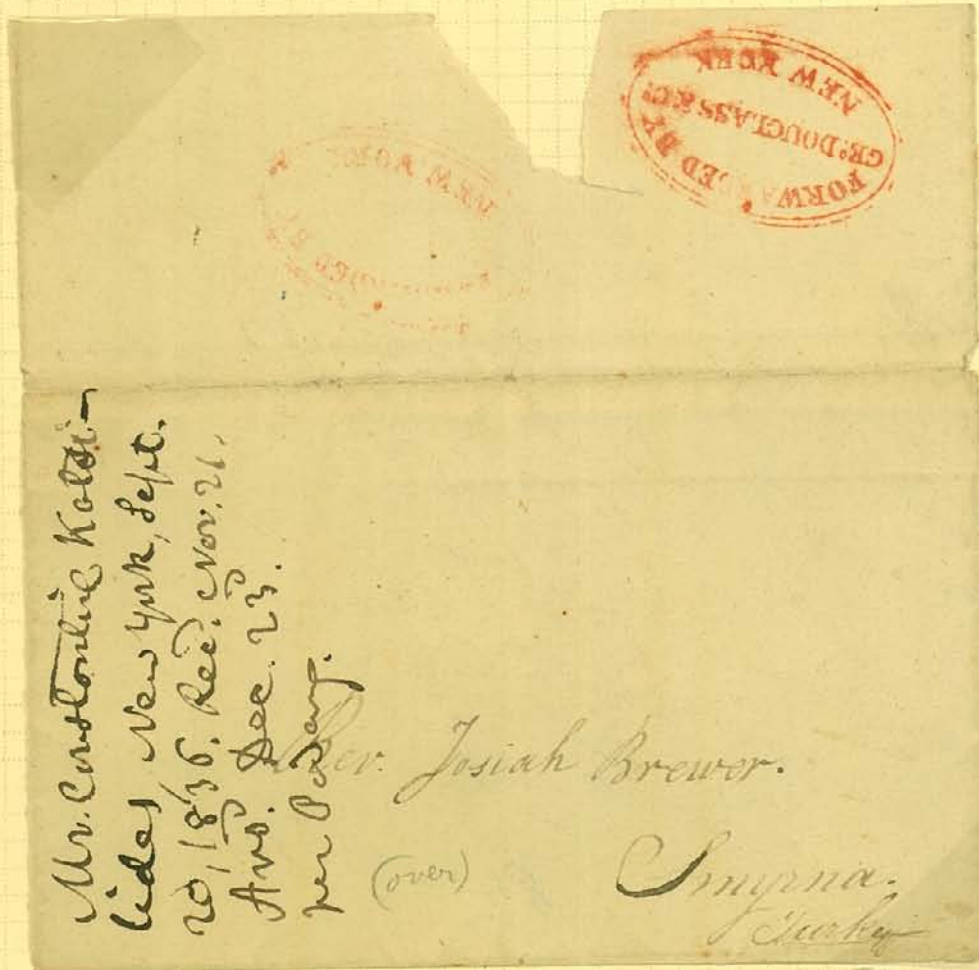 FORWARDED BY
GEO DOUGLASS & Co
NEW YORK
NEW YORK
Mr. Constantine Kaldi-
lides New York, Sept.
20, 1836. Recd. Nov. 21.
Ansd. Dec. 23.
per
Rev. Josiah Brewer.
Smyrna.
Turkey
(over)